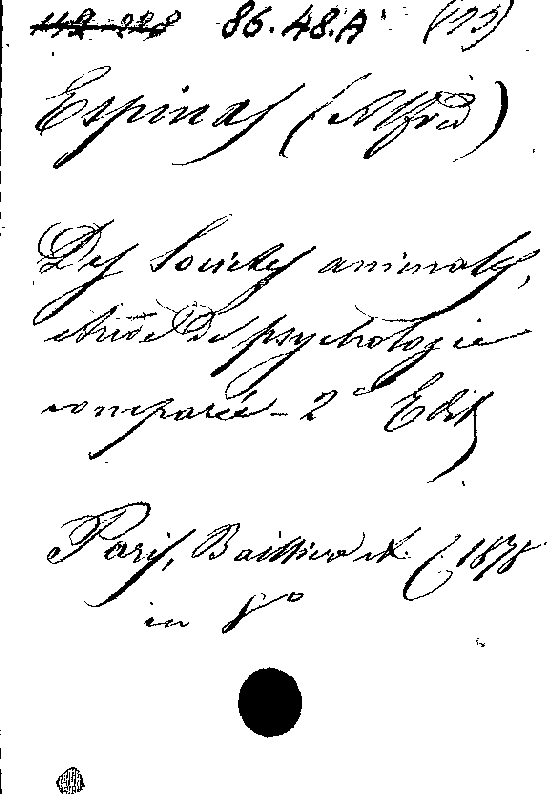 86.48.A (13)
Espinas (Alfred)
Des Sociétés animales,
étude de psychologie
comparée - 2e Edit
Paris, Baillière (1878
in 8°